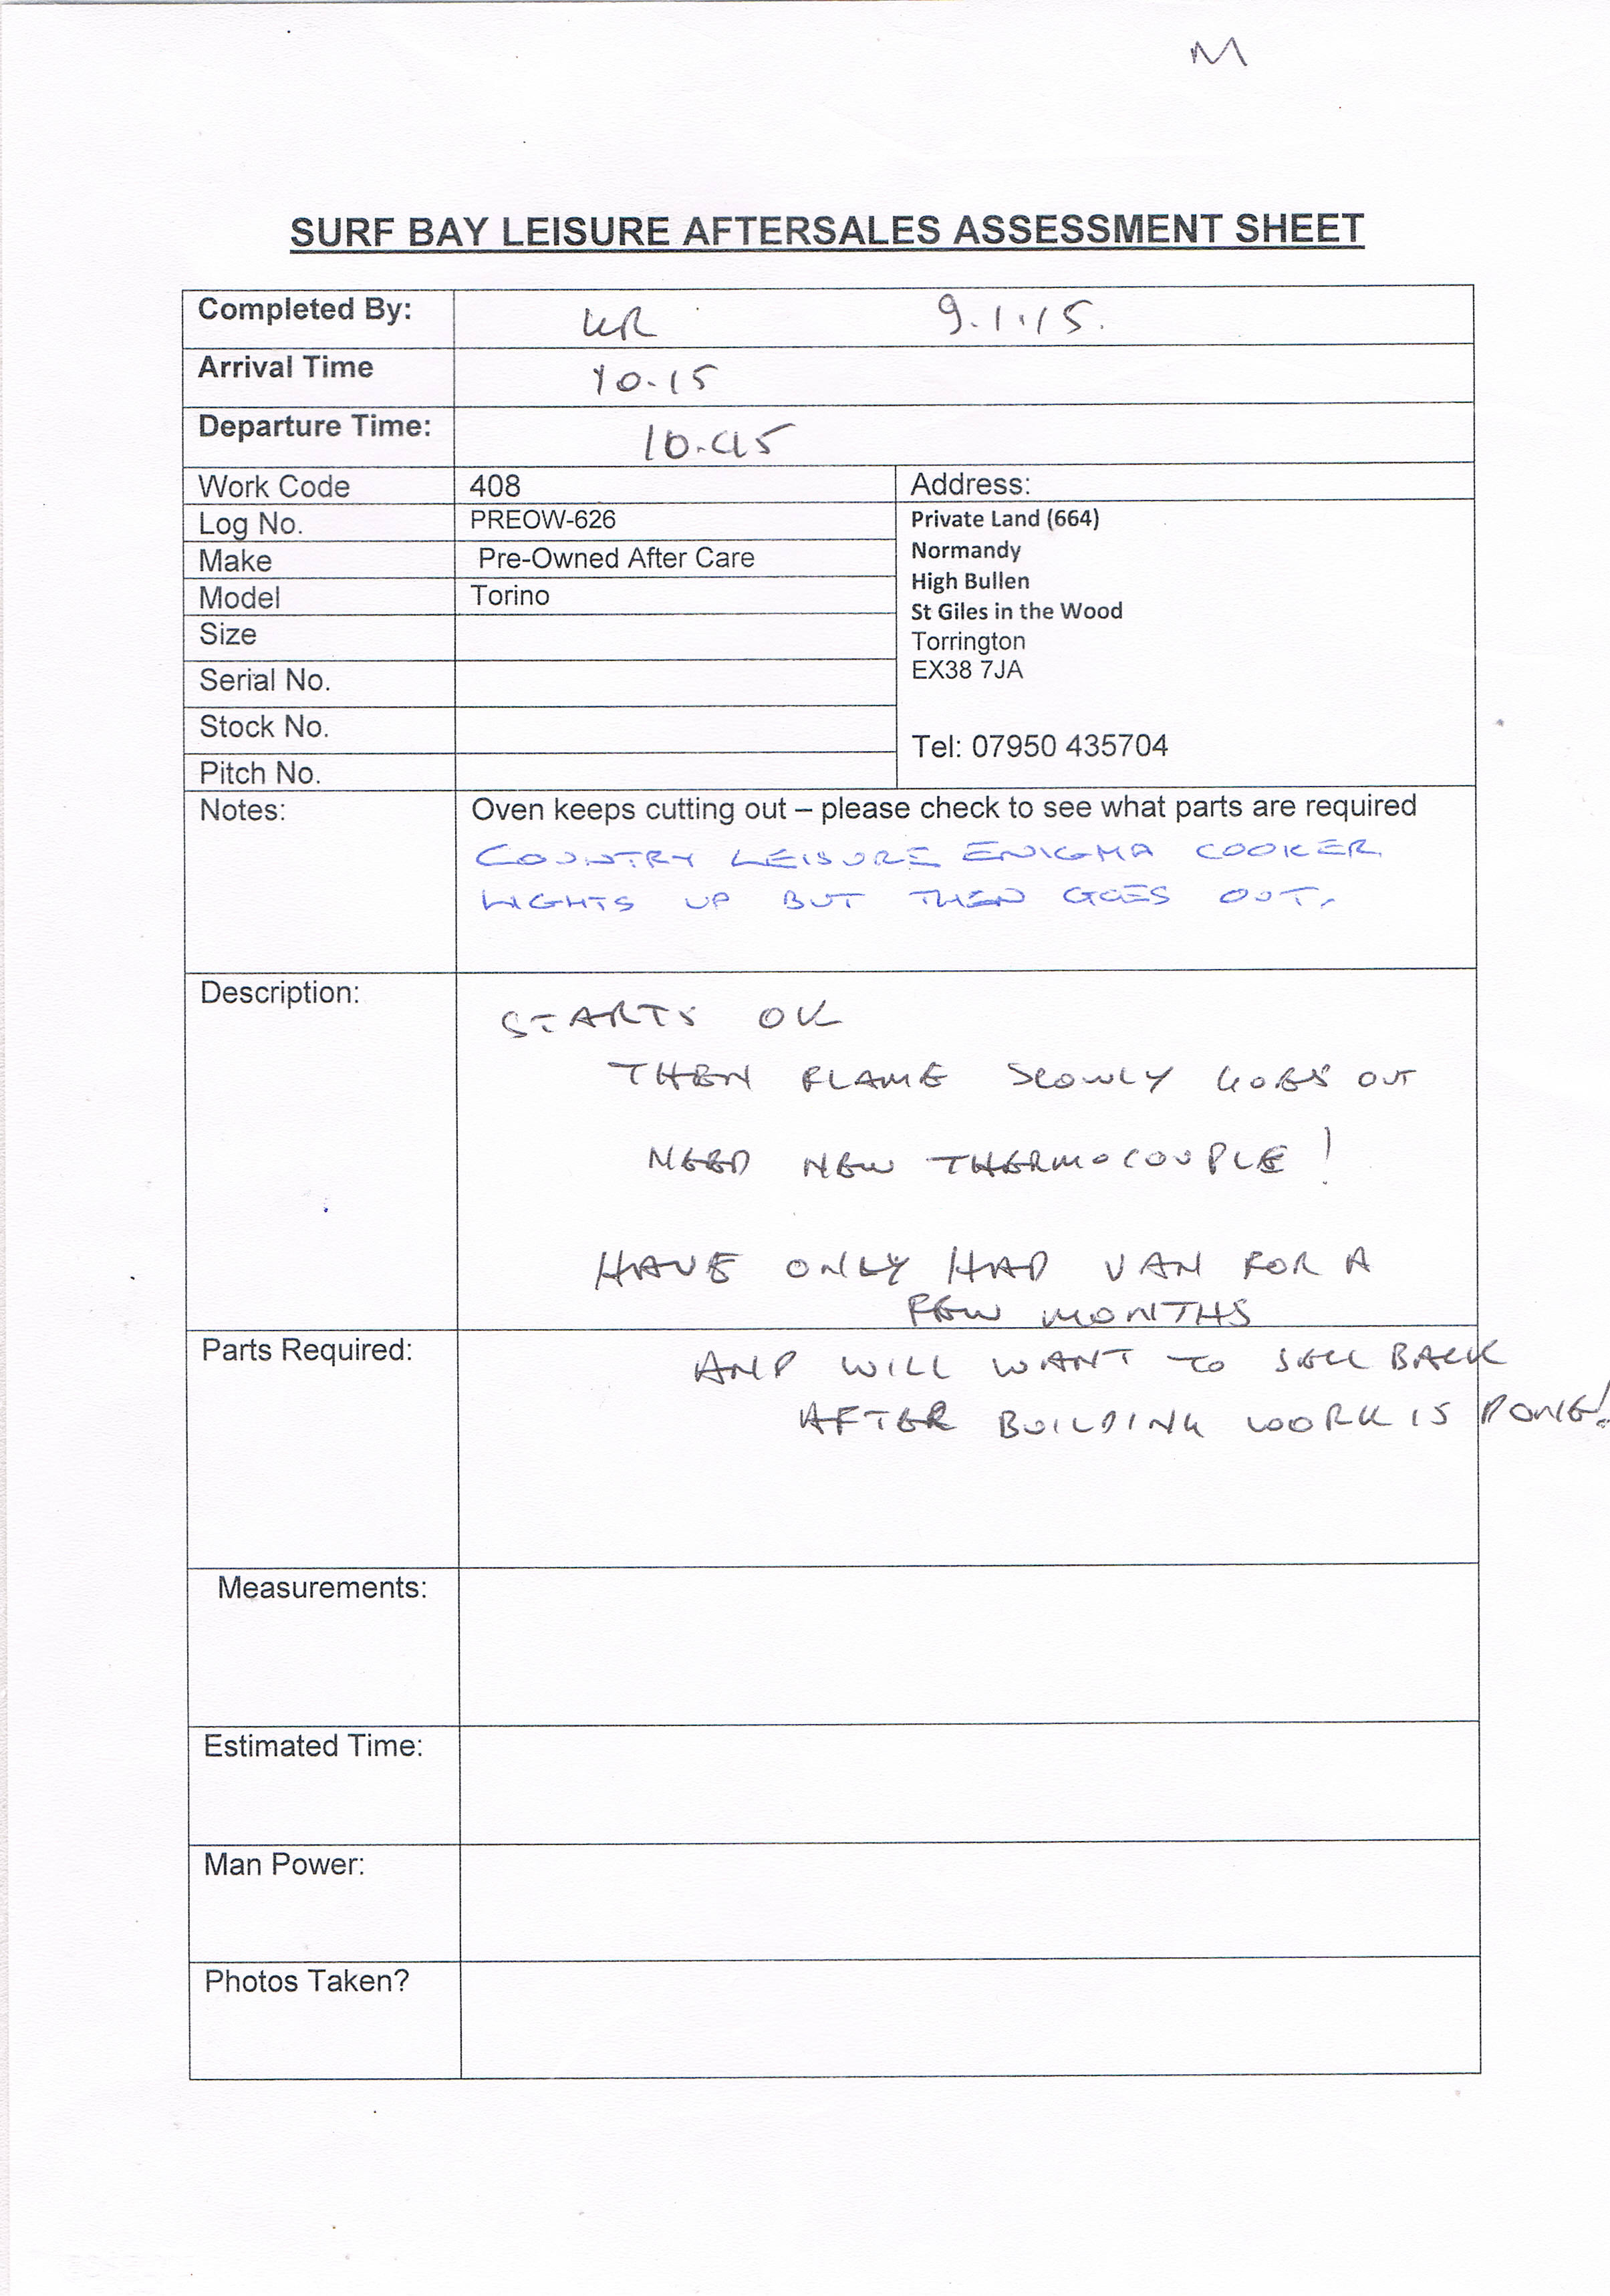 M
SURF BAY LEISURE AFTERSALES ASSESSMENT SHEET
Completed By: KR 9.1.15.
Arrival Time 10.15
Departure Time: 10.45
Work Code 408 Address:
Log No. PREOW-626 Private Land (664)
Make Pre-Owned After Care Normandy
Model Torino High Bullen
St Giles in the Wood
Size Torrington
Serial No. EX38 7JA
Stock No. Tel: 07950 435704
Pitch No.
Notes: Oven keeps cutting out – please check to see what parts are required
COUNTRY LEISURE ENIGMA COOKER
LIGHTS UP BUT THEN GOES OUT.
Description: STARTS OK
THEN FLAME SLOWLY GOES OUT
NEED NEW THERMOCOUPLE!
HAVE ONLY HAD VAN FOR A
FEW MONTHS
Parts Required: AND WILL WANT TO SELL BACK
AFTER BUILDING WORK IS DONE!
Measurements:
Estimated Time:
Man Power:
Photos Taken?